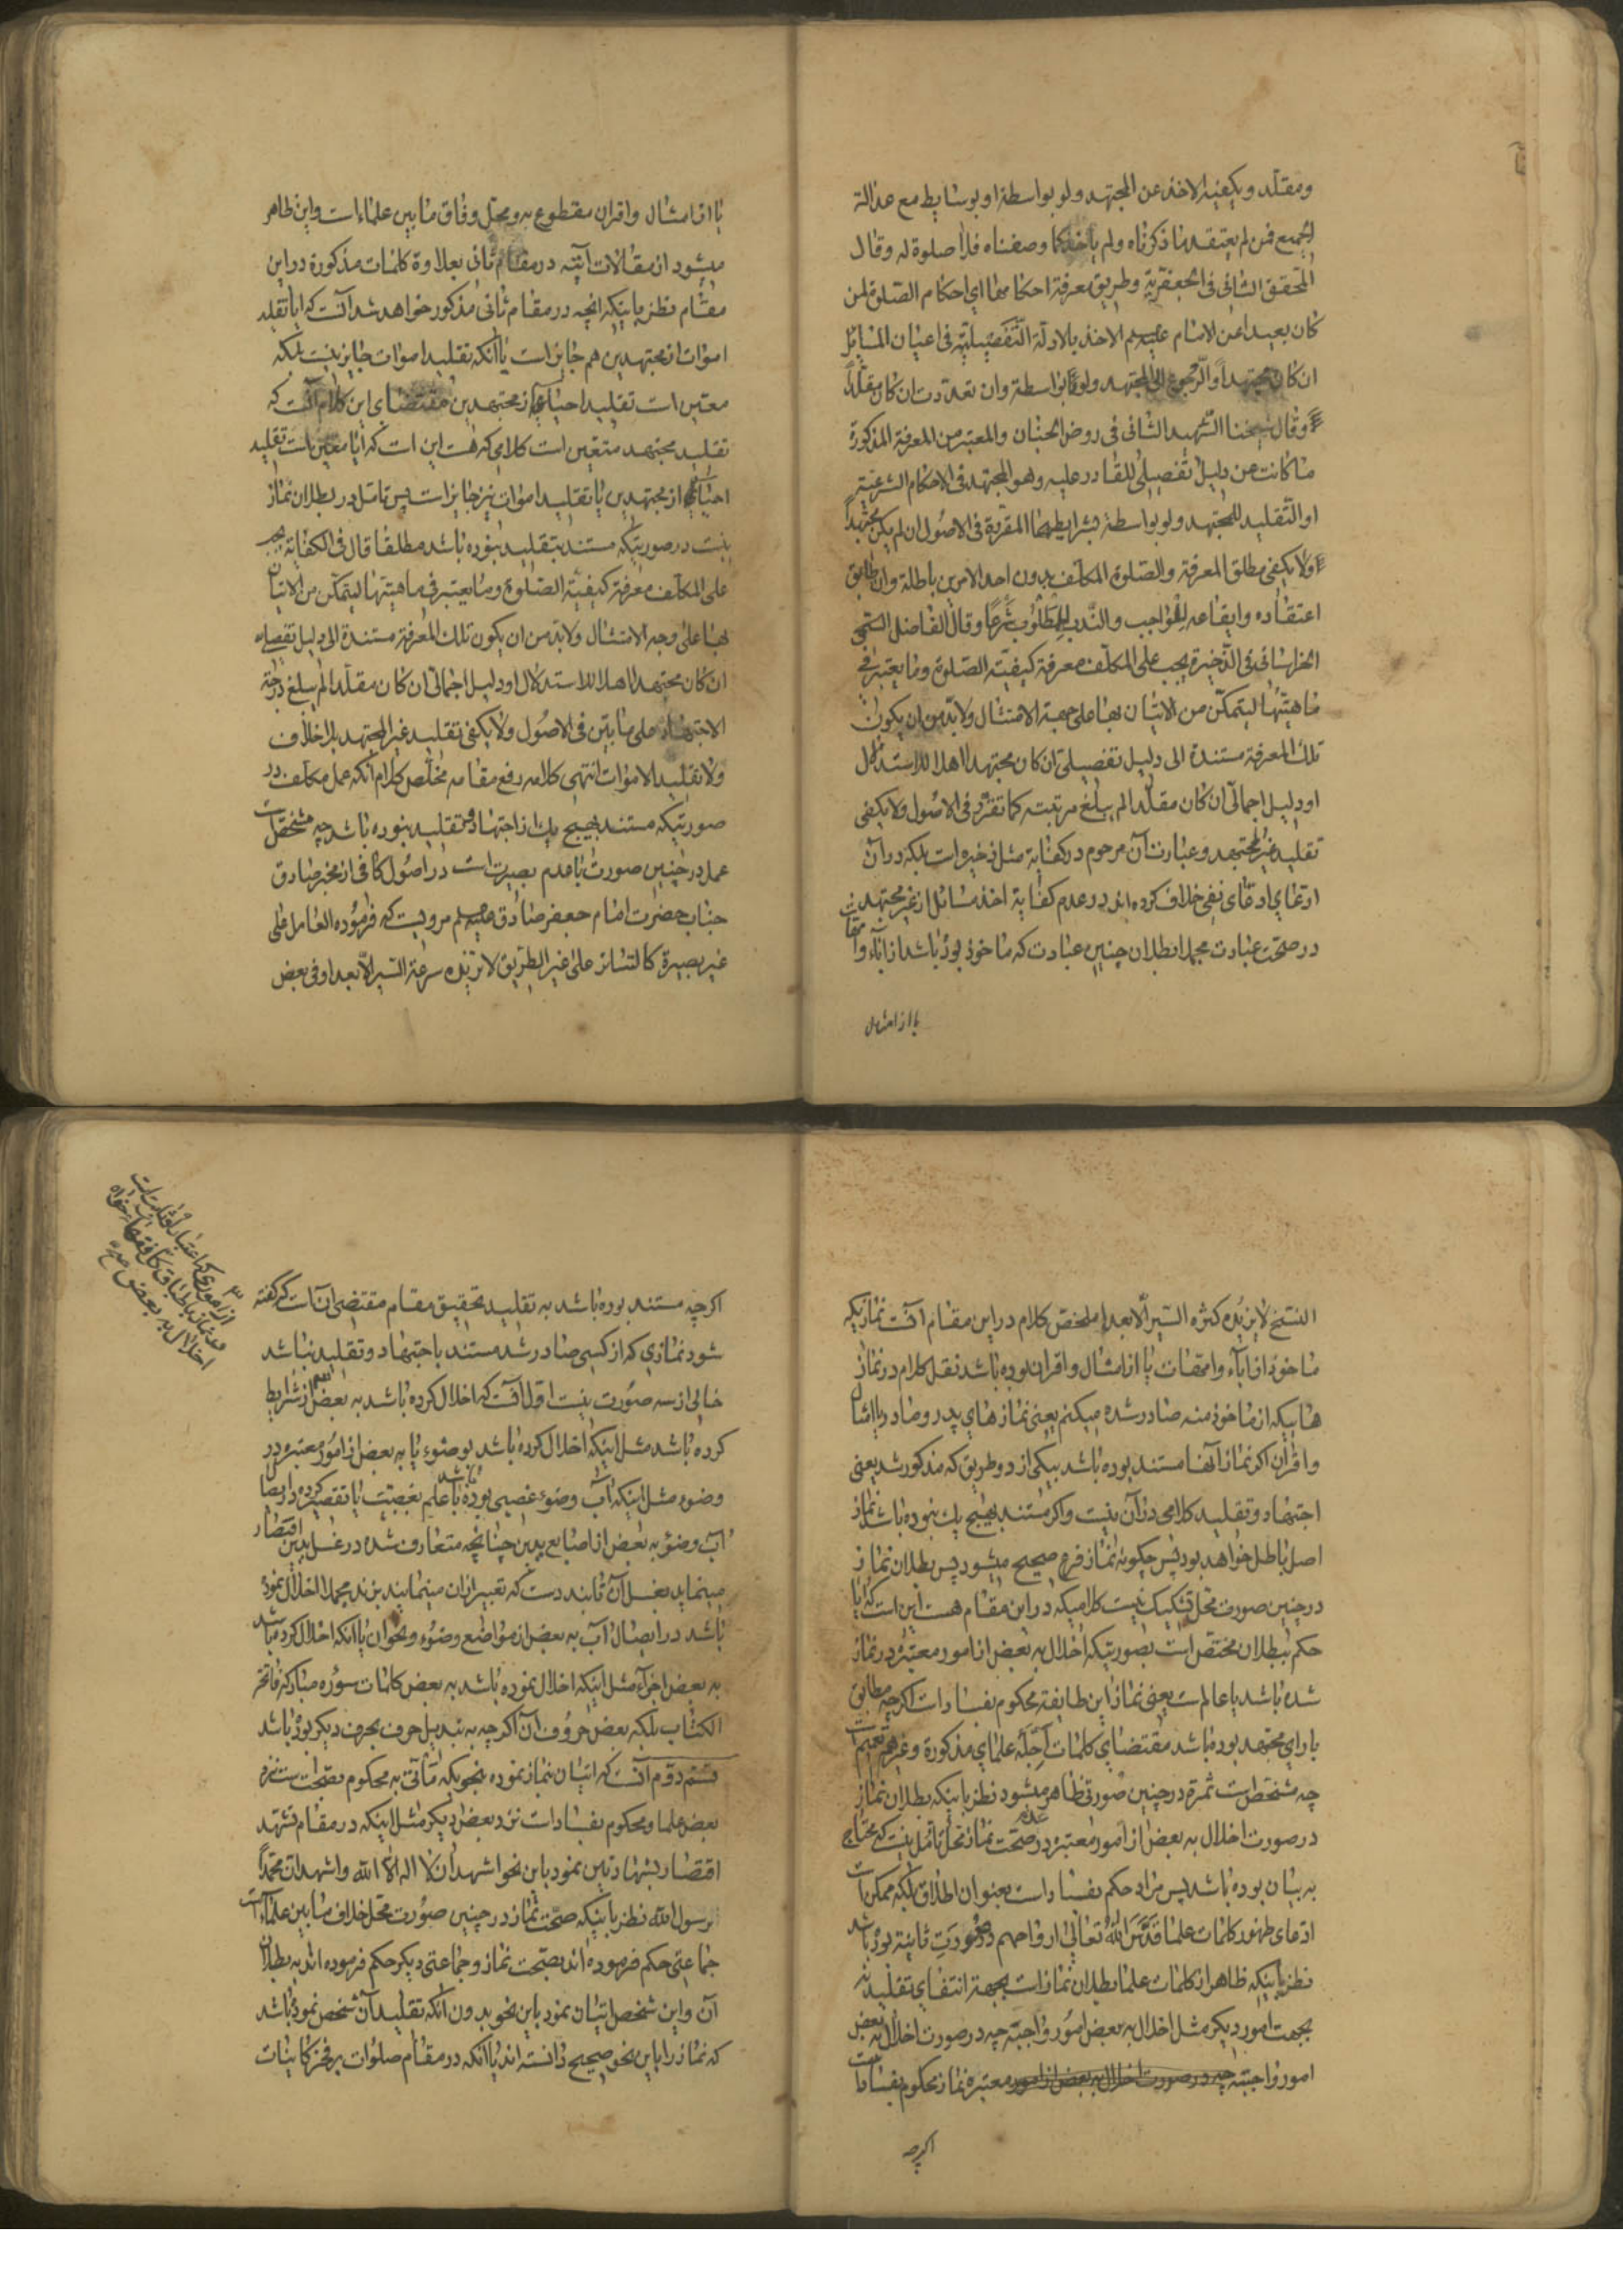 ومقلد ويكفيه الاخذ عن المجتهد ولو بواسطة او بوسايط مع عدالة
الجميع فمن لم يعتقد ما ذكرناه ولم ياخذ كما وصفناه فلا صلوة له وقال
المحقق الثانى فى الجعفرية وطريق معرفة احكامها اى احكام الصلوة لمن
كان بعيدا عن الامام عليه السلم الاخذ بالادلة التفصيلية فى اعيان المسائل
ان كان مجتهدا والرجوع الى المجتهد ولو بواسطة وان تعددت ان كان مقلدا
وقال شيخنا الشهيد الثانى فى روض الجنان والمعتبر من المعرفة المذكورة
ما كانت عن دليل تفصيلى للقادر عليه وهو المجتهد فى الاحكام الشرعية
او التقليد للمجتهد ولو بواسطة بشرايطهما المقررة فى الاصول ان لم يكن مجتهدا
ولا يكفى مطلق المعرفة والصلوة المكلف بدون احد الامرين باطلة وان طابق
اعتقاده وايقاعه للواجب والندب للمطلوب شرعا وقال الفاضل السمى
الخراسانى فى الذخيرة يجب على المكلف معرفة كيفية الصلوة وما يعتبر فى
ماهيتها ليتمكن من الاتيان بها على جهة الامتثال ولا بد من ان يكون
تلك المعرفة مستندة الى دليل تفصيلى ان كان مجتهدا اهلا للاستدلال
او دليل اجمالى ان كان مقلدا لم يبلغ مرتبته كما تقرر فى الاصول ولا يكفى
تقليد غير المجتهد وعبارت آن مرحوم در كفايه مثل ذخيره است بلكه در آن
ادعاى نفى خلاف كرده اند در عدم كفاية اخذ مسائل از غير مجتهد
در صحت عبادت مجملا بطلان چنين عبادت كه ماخوذ بوده باشد از آباء و امهات
يا از امثال
يا از امثال و اقران مقطوع به و محل وفاق مابين علماء است و اين ظاهر
ميشود از مقالات آتيه در مقام ثانى بعلاوة كلمات مذكورة در اين
مقام نظر باينكه انچه در مقام ثانى مذكور خواهد شد آنست كه ايا تقليد
اموات از مجتهدين هم جايز است يا آنكه تقليد اموات جايز نيست بلكه
معتبر است تقليد احياء از مجتهدين مقتضاى اين كلام آنست كه
تقليد مجتهد متعين است كلامى كه هست اين است كه ايا معين است تقليد
احياء از مجتهدين يا تقليد اموات نيز جايز است پس تامل در بطلان نماز
نيست در صورتيكه مستند بتقليد نبوده باشد مطلقا قال فى الكفاية يجب
على المكلف معرفة كيفية الصلوة وما يعتبر فى ماهيتها ليتمكن من الاتيان
بها على وجه الامتثال ولا بد من ان يكون تلك المعرفة مستندة الى دليل تفصيلى
ان كان مجتهدا اهلا للاستدلال او دليل اجمالى ان كان مقلدا لم يبلغ درجة
الاجتهاد على ما بين فى الاصول ولا يكفى تقليد غير المجتهد بلا خلاف
ولا تقليد الاموات انتهى كلامه رفع مقامه مخلص كلام آنكه عمل مكلف در
صورتيكه مستند بهيچ يك از اجتهاد و تقليد نبوده باشد چه مشخص است
عمل در چنين صورت با عدم بصيرت است در اصول كافى از مخبر صادق
جناب حضرت امام جعفر صادق عليه السلم مرويست كه فرموده العامل على
غير بصيرة كالسائر على غير الطريق لا يزيده سرعة السير الا بعدا وفى بعض
النسخ لا يزيده كثرة السير الا بعدا ملخص كلام در اين مقام آنست نمازيكه
ماخوذ از اباء و امهات يا از امثال و اقران بوده باشد نقل كلام در نماز
هائيكه از ماخوذ منه صادر شده ميكنم يعنى نماز هاى پدر و مادر يا امثال
و اقران اكر نماز آنها مستند بوده باشد بيكى از دو طريق كه مذكور شد يعنى
اجتهاد و تقليد كلامى در آن نيست و اكر مستند بهيچ يك نبوده باشد نماز
اصل باطل خواهد بود پس چكونه نماز فرع صحيح ميشود پس بطلان نماز
در چنين صورت محل تشكيك نيست كلاميكه در اين مقام هست اين است كه ايا
حكم ببطلان مختص است بصورتيكه اخلال به بعض از امور معتبره در نماز
شده باشد يا عام است يعنى نماز اين طايفه محكوم بفساد است اكر چه مطابق
با راى مجتهد بوده باشد مقتضاى كلمات اجله علماى مذكورة و غيرهم تعميم است
چه مشخص است ثمرة در چنين صورتى ظاهر ميشود نظر باينكه بطلان نماز
در صورت اخلال به بعض از امور معتبره در عدم صحت نماز محل تامل نيست كه محتاج
به بيان بوده باشد پس مراد حكم بفساد است بعنوان اطلاق بلكه ممكن است
ادعاى ظهور كلمات علما قدس الله تعالى ارواحهم در صورت ثانيه بوده باشد
نظر باينكه ظاهر از كلمات علما بطلان نماز است بجهة انتفاى تقليد نه
بجهت امور ديكر مثل اخلال به بعض امور واجبه چه در صورت اخلال به بعض
امور واجبه چه در صورت اخلال به بعض از امور معتبره نماز محكوم بفساد است
اكر چه
اكر چه مستند بوده باشد به تقليد تحقيق مقام مقتضى آنست كه كفته
شود نمازى كه از كسى صادر شد مستند باجتهاد و تقليد نباشد
خالى از سه صورت نيست اول آنست كه اخلال كرده باشد به بعض از شرايط
كرده باشد مثل اينكه اخلال كرده باشد بوضوء يا به بعض از امور معتبره در
وضوء مثل اينكه آب وضوء غصبى بوده باشد با علم بغصبيت يا تقصير كرده در ايصال
آب وضوء به بعض از اصابع يدين چنانچه متعارف شده در غسل يدين اقتصار
مينمايد بغسل آن تا بند دست كه تعبير از ان مينمايند بزند مجملا اخلال نموده
باشد در ايصال آب به بعض از مواضع وضوء و نحو ان يا آنكه اخلال كرده باشد
به بعض اجزاء مثل اينكه اخلال نموده باشد به بعض كلمات سوره مباركه فاتحة
الكتاب بلكه بعض حروف آن اكر چه به تبديل حرف بحرف ديكر بوده باشد
قسم دوم آنست كه اتيان بنماز نموده بنحويكه مأتى به محكوم بصحت است نزد
بعض علما و محكوم بفساد است نزد بعض ديكر مثل اينكه در مقام تشهد
اقتصار بشهادتين نمود باين نحو اشهد ان لا اله الا الله و اشهد ان محمدا
رسول الله نظر باينكه صحت نماز در چنين صورت محل خلاف مابين علماء است
جماعتى حكم فرموده اند بصحت نماز و جماعتى ديكر حكم فرموده اند به بطلان
آن و اين شخص اتيان نمود باين نحو بدون آنكه تقليد آن شخص نموده باشد
كه نماز را باين نحو صحيح دانسته اند يا آنكه در مقام صلوات بر فخر كاينات
از امورى كه اعتبار او ثابت است
در نماز باطباق كل فقهاء خواه
اخلال به بعض